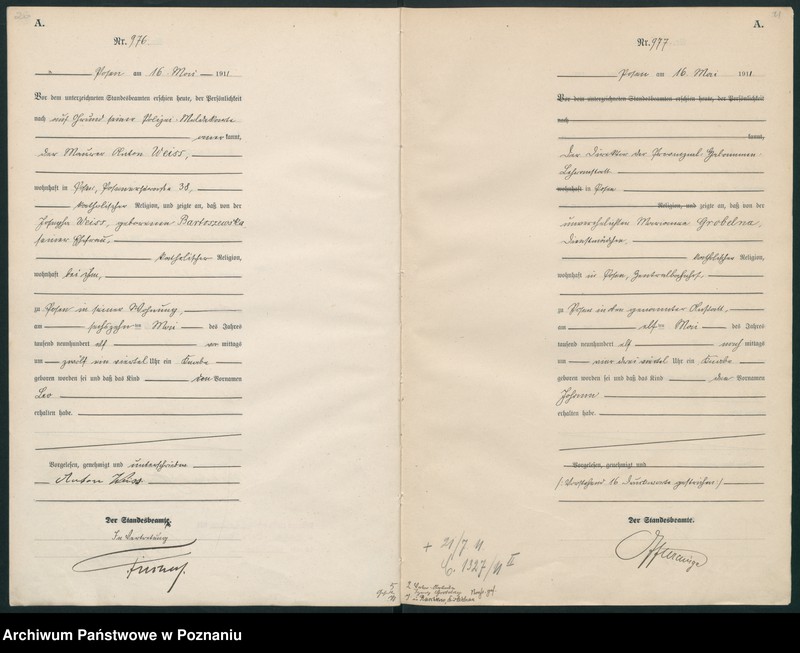 A.
Nr. 976.
Posen am 16 Mai 1911
Vor dem unterzeichneten Standesbeamten erschien heute, der Persönlichkeit
nach auf Grund seiner Polizei-Meldekarte
anerkannt,
der Maurer Anton Weiss,
wohnhaft in Posen, Posenerstrasse 38,
katholischer Religion, und zeigte an, daß von der
Josepha Weiss, geborenen Bartoszewska
seiner Ehefrau,
katholischer Religion,
wohnhaft bei ihm,
zu Posen in seiner Wohnung,
am sechszehnten Mai des Jahres
tausend neunhundert elf vormittags
um zwölf ein viertel Uhr ein Knabe
geboren worden sei und daß das Kind den Vornamen
Leo
erhalten habe.
Vorgelesen, genehmigt und unterschrieben
Anton Weiss
Der Standesbeamte.
In Vertretung
A.
Nr. 977
Posen am 16. Mai 1911
Vor dem unterzeichneten Standesbeamten erschien heute, der Persönlichkeit
nach
kannt,
Der Direktor der Provinzial-Hebammen-
Lehranstalt
wohnhaft in Posen
Religion, und zeigte an, daß von der
unverehelichten Marianna Grobelna,
Dienstmädchen,
katholischer Religion,
wohnhaft in Posen, Zentralbahnhof,
zu Posen in der genannten Anstalt,
am elften Mai des Jahres
tausend neunhundert elf nachmittags
um drei viertel Uhr ein Knabe
geboren worden sei und daß das Kind den Vornamen
Johann
erhalten habe.
Vorgelesen, genehmigt und
/: Vorstehend 16 Druckworte gestrichen :/
Der Standesbeamte.
+ 21/7 11
C. 1327/11 II
Archiwum Państwowe w Poznaniu